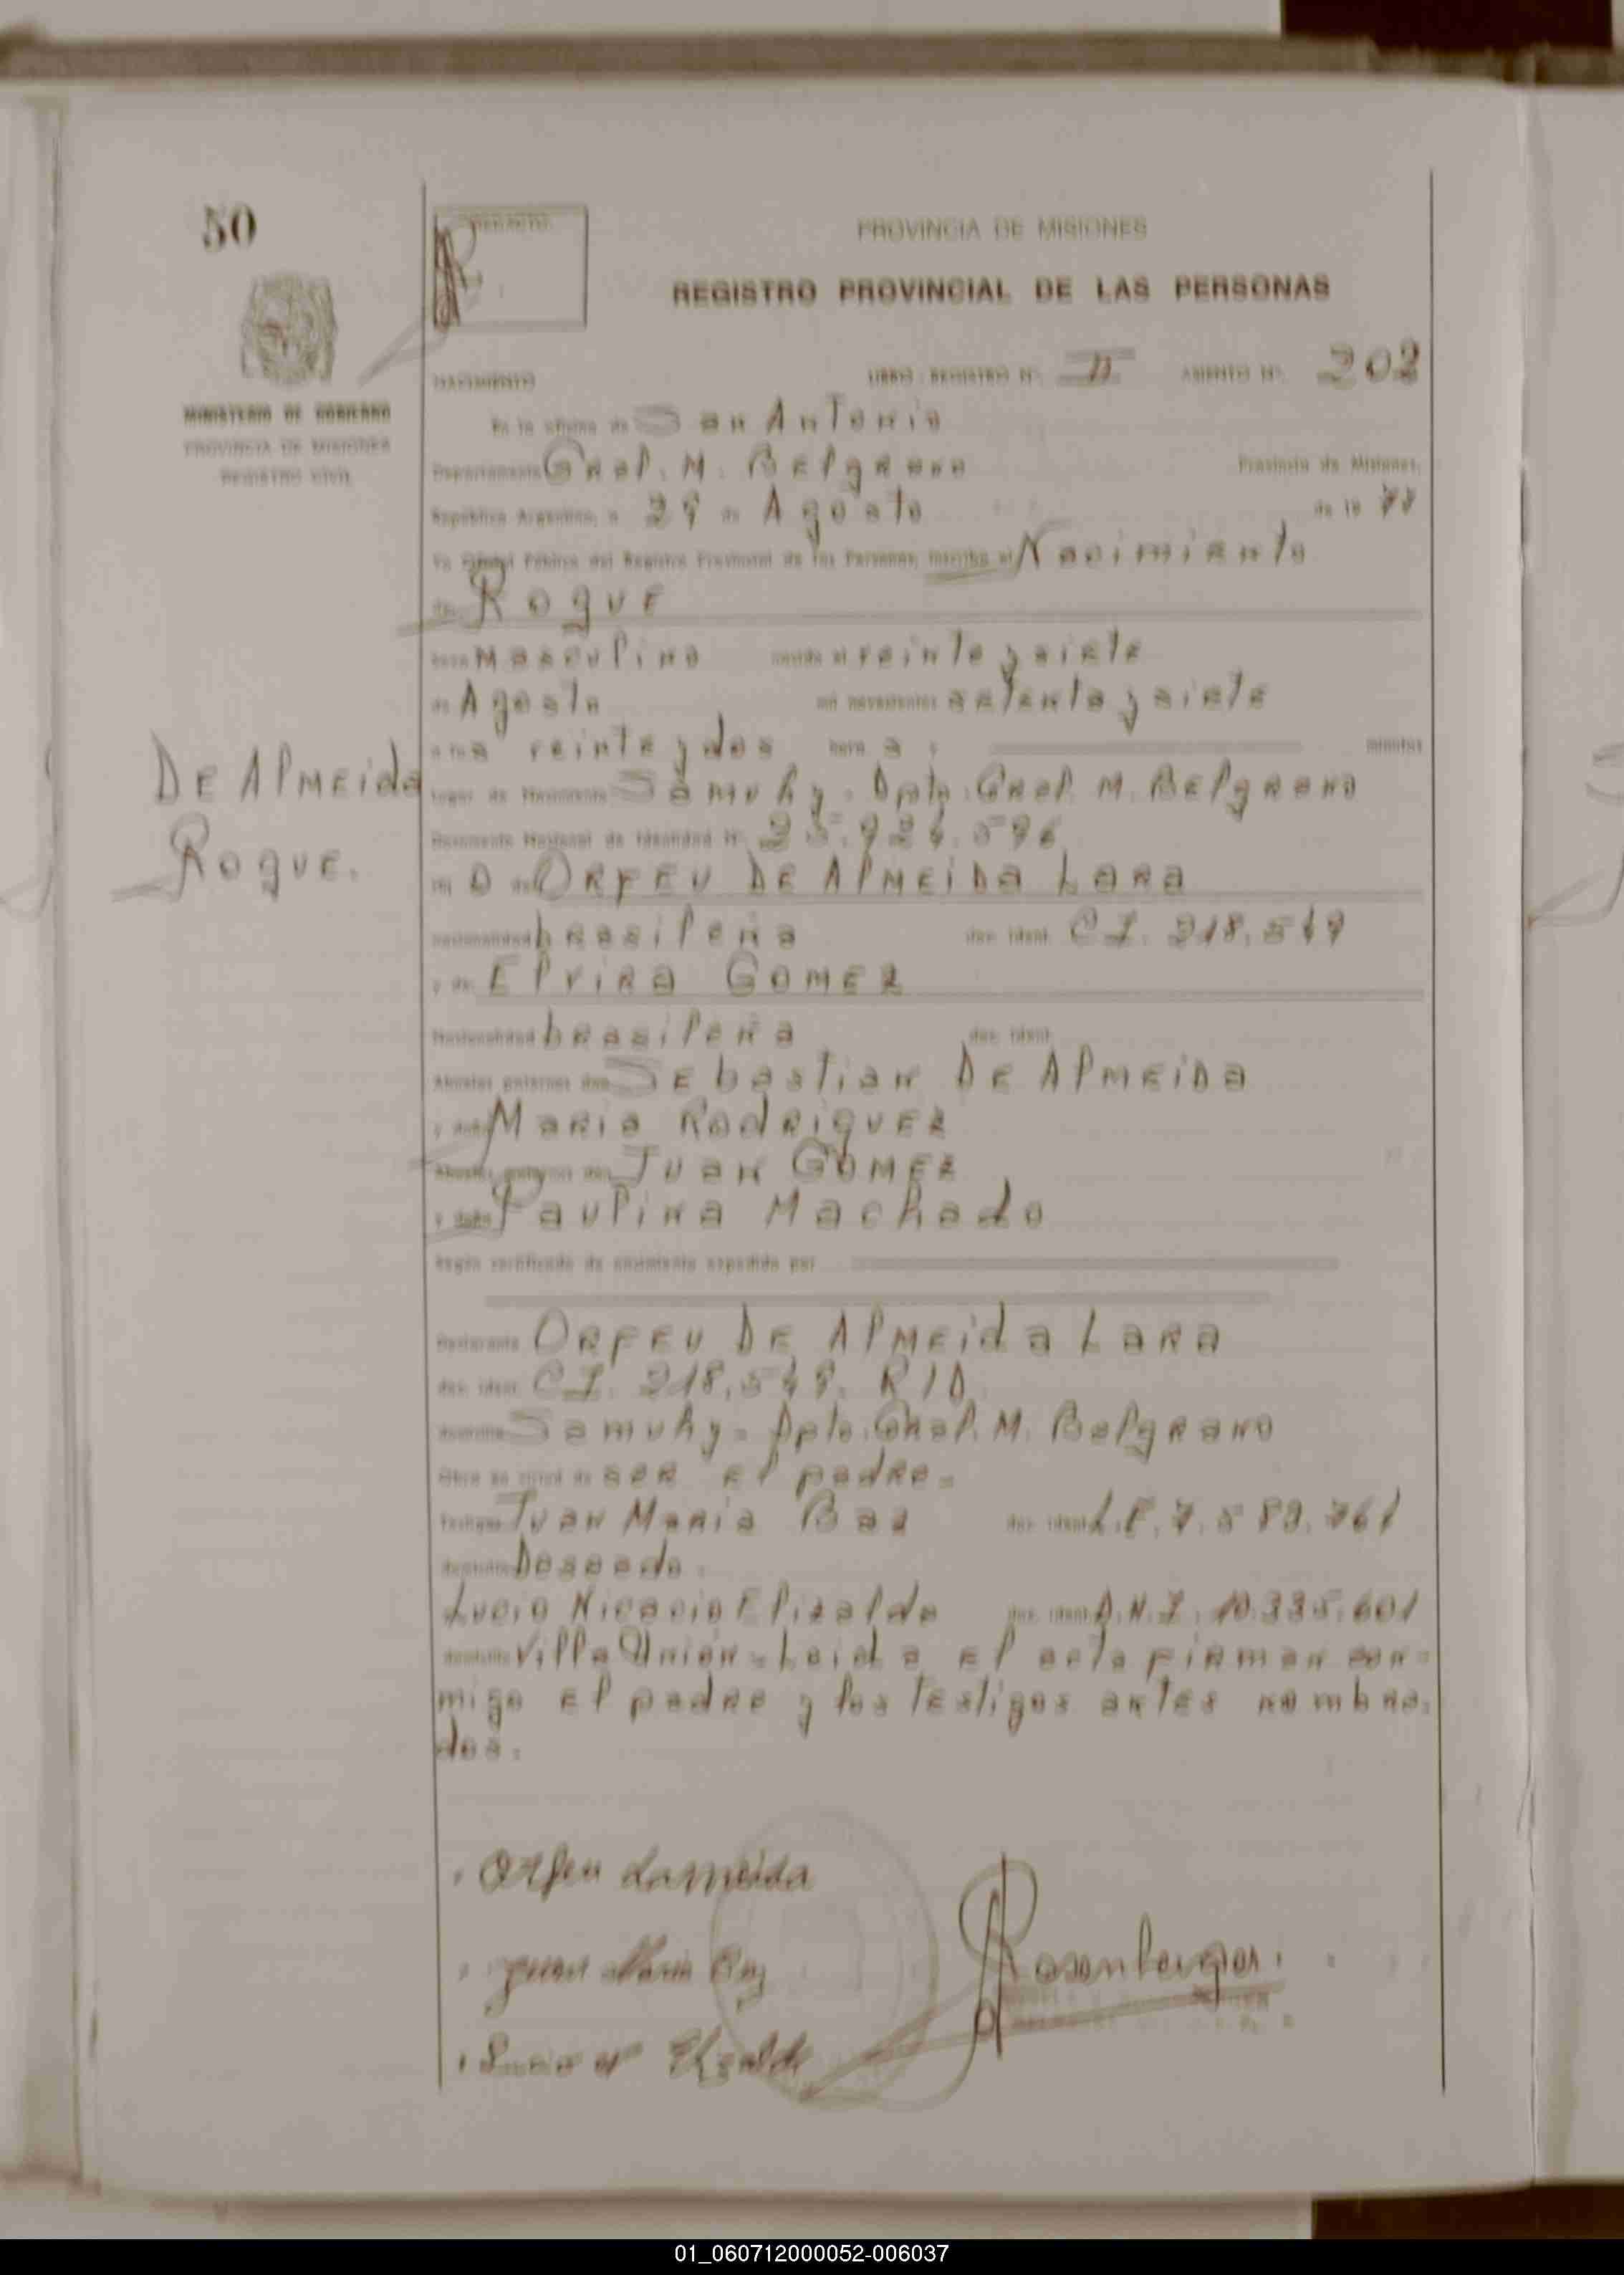 50
PROVINCIA DE MISIONES
REGISTRO PROVINCIAL DE LAS PERSONAS
MINISTERIO DE GOBIERNO
PROVINCIA DE MISIONES
REGISTRO CIVIL
NACIMIENTO LIBRO REGISTRO Nº II ASIENTO Nº 202
En la oficina de San Antonio
Departamento Gral. M. Belgrano Provincia de Misiones,
República Argentina, a 29 de Agosto de 19 77
Yo Oficial Público del Registro Provincial de las Personas, inscribo el Nacimiento
de Roque
sexo masculino nacido el veinte y siete
de Agosto mil novecientos setenta y siete
a las veinte y dos hora s y minutos
DE AlMEida
Roque.
lugar de Nacimiento Samuhy - Dpto. Gral. M. Belgrano
Documento Nacional de Identidad Nº
hij o de ORFEU DE AlMEiDa LaRa
nacionalidad brasileña doc. ident. C I. 218.549
y de Elvira GOMEZ
Nacionalidad brasileña doc. ident.
Abuelos paternos don SEbastian DE AlMEiDa
y doña Maria RodriguEz
Abuelos maternos don Juan GOMEZ
y doña Paulina Machado
Según certificado de nacimiento expedido por
Declarante ORFEU DE AlMEida LaRa
doc. ident. C I. 218.549. R / D
domicilio Samuhy - Dpto. Gral. M. Belgrano
Obra en virtud de ser el padre.-
Testigos Juan Maria Baz doc. ident. L.E. 7.589.761
domicilio Deseado.
Lucio Nicacio Elizalde doc. ident. D.N.I. 10.335.601
domicilio Villa Unión - Leida el acta firman con-
migo el padre y los testigos antes nombra-
dos.
Orfeu Lameida
Juan Maria Baz
Rosenberger
Lucio N Elizalde
01_060712000052-006037